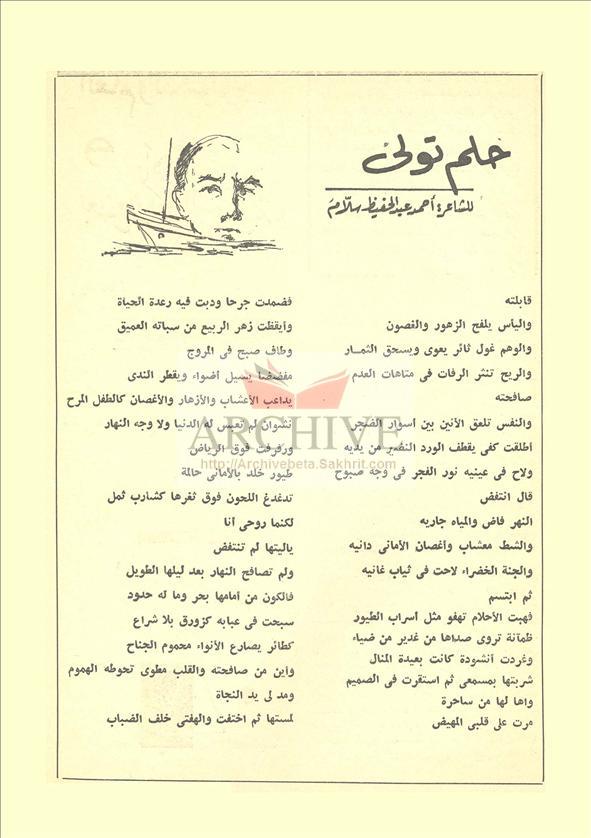 حلم تولى
للشاعر: أحمد عبد الحفيظ سلام
قابلته
واليأس يلفح الزهور والغصون
والوهم غول ثائر يعوى ويسحق الثمـار
والريح تنثر الرفات فى متاهات العدم
صافحته
والنفس تلعق الأنين بين أسوار الضجر
أطلقت كفى يقطف الورد النضير من يديه
ولاح فى عينيه نور الفجر فى وجه صبوح
قال انتفض
النهر فاض والمياه جاريه
والشط معشاب وأغصان الأمانى دانيه
والجنة الخضراء لاحت فى ثياب غانيه
ثم ابتسم
فهبت الأحلام تهفو مثل أسراب الطيور
ظمآنة تروى صداها من غدير من ضياء
وغردت أنشودة كانت بعيدة المنال
شربتها بمسمعى ثم استقرت فى الصميم
واها لها من ساحرة
مرت على قلبى المهيض
فضمدت جرحا ودبت فيه رعدة الحياة
وأيقظت زهر الربيع من سباته العميق
وطاف صبح فى المروج
مفضضا يسيل أضواء ويقطر الندى
يداعب الأعشاب والأزهار والأغصان كالطفل المرح
نشوان لم تعبس له الدنيا ولا وجه النهار
ورفرفت فوق الرياض
طيور خلد بالأمانى حالمة
تدغدغ اللحون فوق ثغرها كشارب ثمل
لكنما روحى أنا
ياليتها لم تنتفض
ولم تصافح النهار بعد ليلها الطويل
فالكون من أمامها بحر وما له حدود
سبحت فى عبابه كزورق بلا شراع
كطائر يصارع الأنواء محموم الجناح
وأين من صافحته والقلب مطوى تحوطه الهموم
ومد لى يد النجاة
لمستها ثم اختفت والهفتى خلف الضباب
ARCHIVE
http://Archivebeta.Sakhrit.com